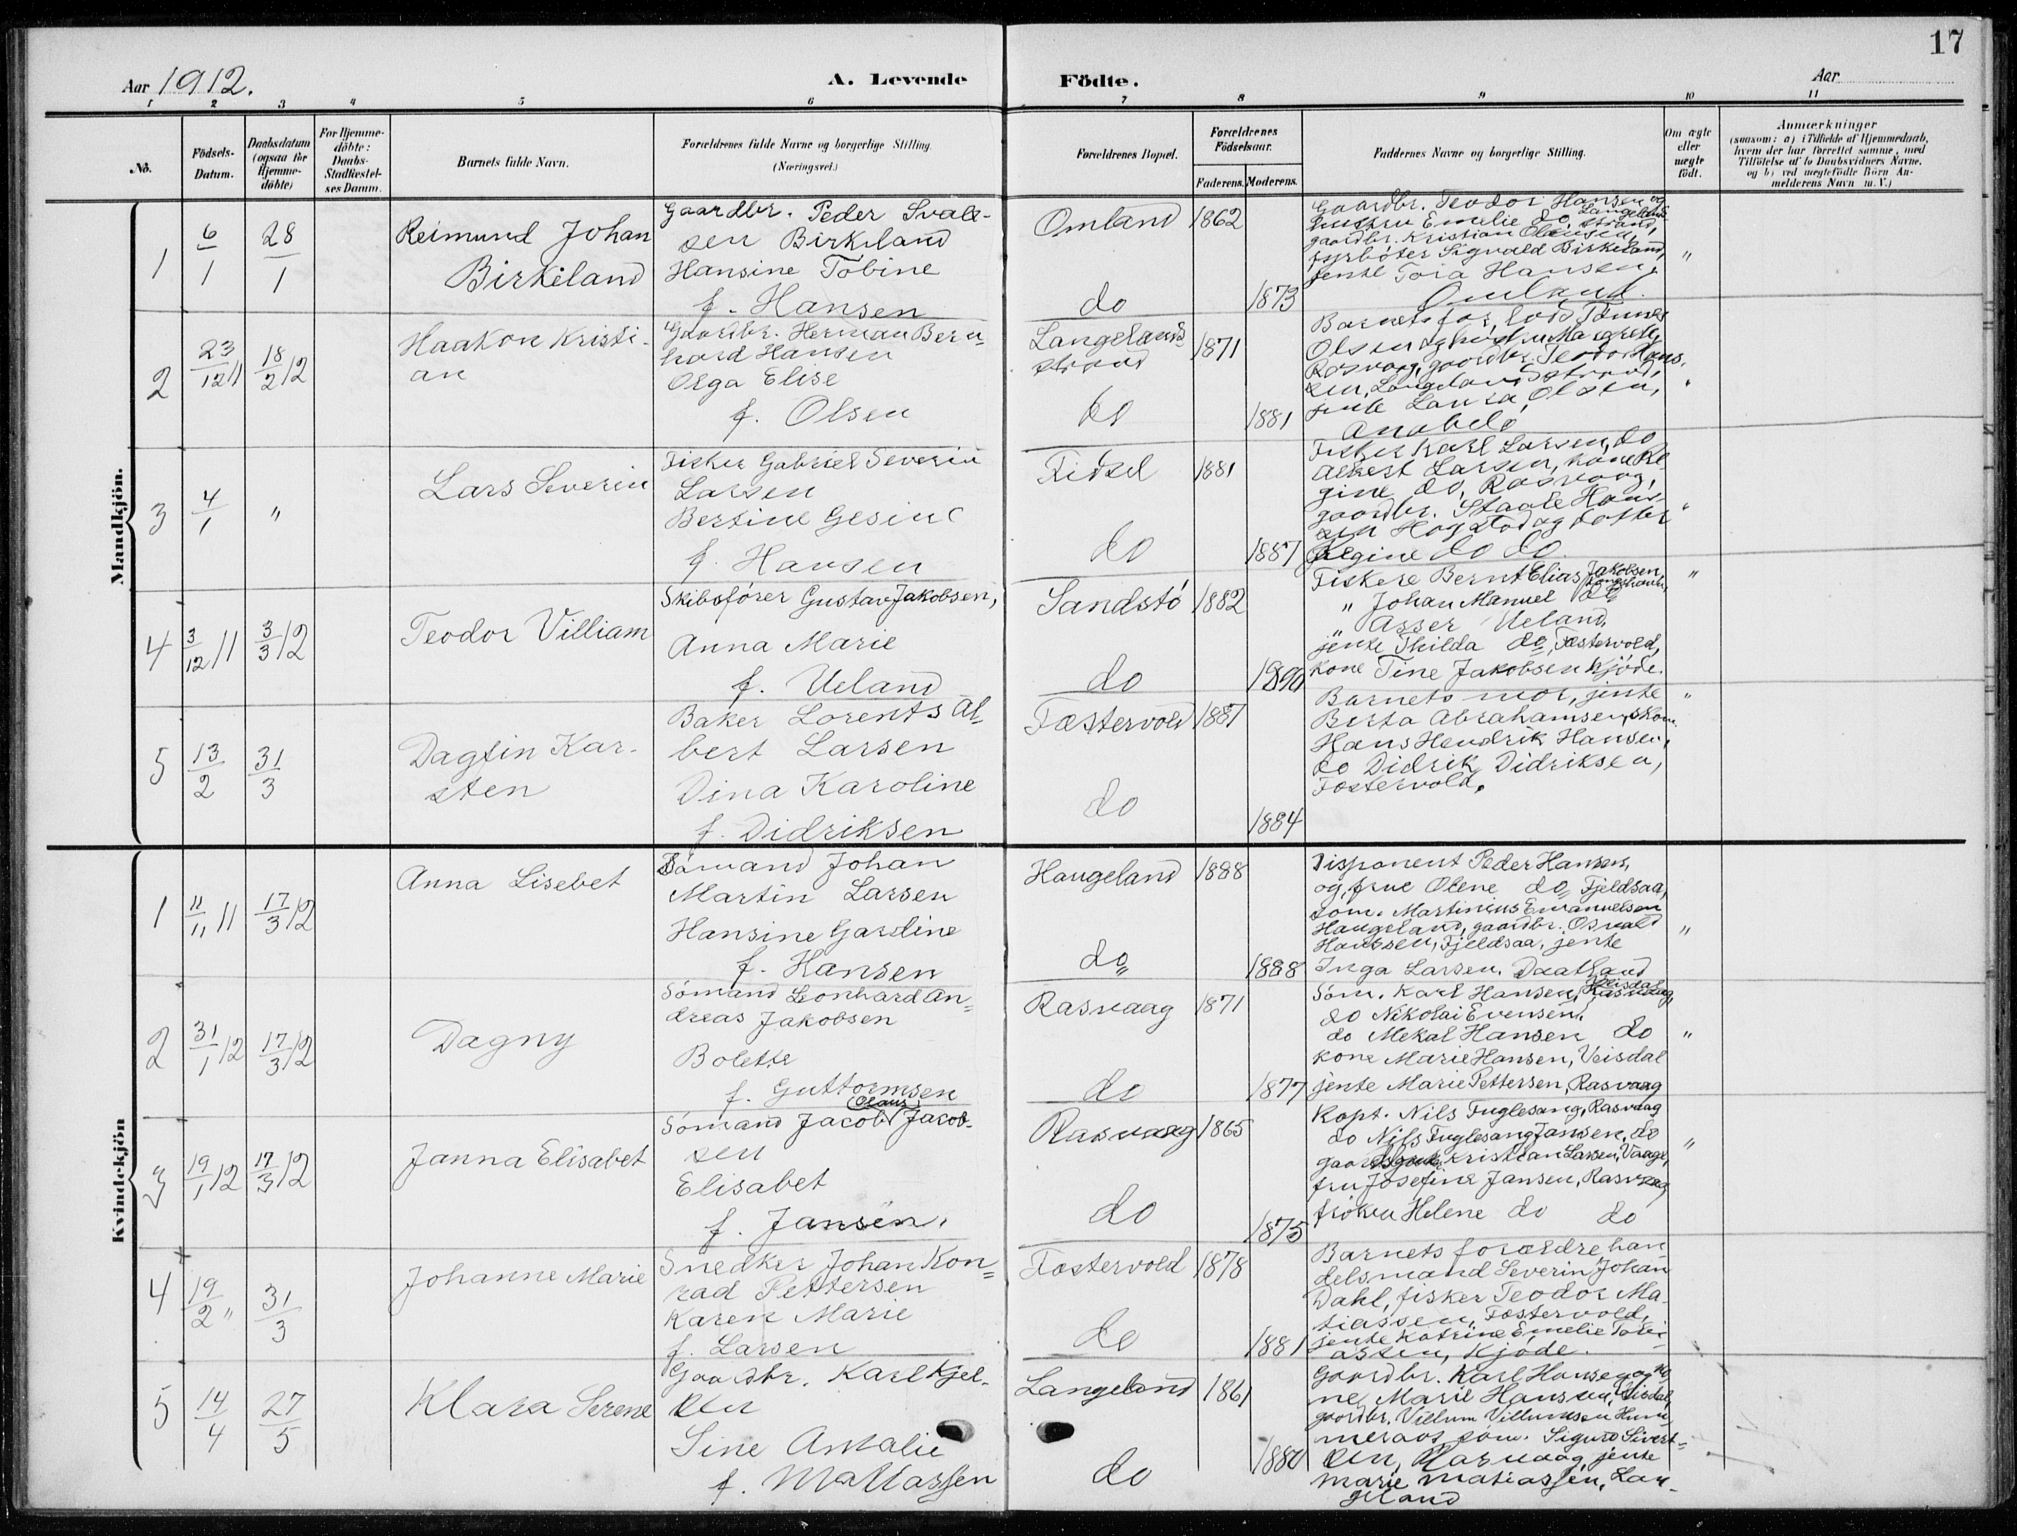 17
Aar 1912.
A. Levende Födte.
Aar
1 2 3 4 5 6 7 8 9 10 11
No.
Födsels-Datum.
Daabsdatum (ogsaa för Hjemme-döbte)
For Hjemme-döbte: Daabs-Stadfæstel-ses Datum.
Barnets fulde Navn.
Forældrenes fulde Navne og borgerlige Stilling.
(Næringsvei.)
Forældrenes Bopæl.
Forældrenes Födselsaar.
Faderens. Moderens.
Faddernes Navne og borgerlige Stilling.
Om ægte eller uægte födt.
Anmærkninger
(saasom: a) i Tilfælde af Hjemmedaab,
hvem der har forrettet samme, med
Tilföielse af to Daabsvidners Navne,
og b) ved uegtefödte Börn An-
melderens Navn m. V.)
Mandkjön.
1
6/1
28/1
Reimund Johan
Birkeland
Gaardbr. Peder Svale-
sen Birkeland
Hansine Tobine
f. Hansen
Omland 1862
do 1873
Gaardbr. Teodor Hansen og
hustru Emelie do, Langelands
strand,
gaardbr. Kristian Olausen,
fyrböter Sigvald Birkeland,
jente Toia Hansen,
Omland.
"
2
23/12 11
18/2 12
Haakon Kristi-
an
Gaardbr. Herman Bern-
hard Hansen
Olga Elise
f. Olsen
Langelands
strand 1871
do 1881
Barnets far, lods Tönnes
Olsen og hustru Margrete,
Rasvaag, gaardbr. Teodor Hans-
sen, Langelandsstrand,
jente Laura Olsen,
Anabelö
"
3
4/1
"
Lars Severin
Fisker Gabriel Severin
Larsen
Bertine Gesine
f. Hansen
Fidsel 1881
do 1887
Fisker Karl Larsen, do
Albest Larsen, kone Re
gine do, Rasvaag,
gaardbr. Staale Hans-
sen Hogstad og datter
Regine do do.
"
4
3/12 11
3/3 12
Teodor Villiam
Skibsförer Gustav Jakobsen,
Anna Marie
f. Ueland
Sandstö 1882
do 1890
Fiskere Bernt Elias Jakobsen
" Johan Manuel do
" Asser Ueland,
jente Thilda do, Fæstervold,
kone Tine Jakobsen Kjöde.
"
5
13/2
31/3
Dagfin Kar-
sten
Baker Lorents Al-
bert Larsen
Dina Karoline
f. Didriksen
Fæstervold 1887
do 1884
Barnets mor, jente
Berta Abrahamsen, skom.
Hans Hendrik Hansen,
do Didrik Didriksen,
Fæstervold.
"
Kvindekjön
1
11/11 11
17/3 12
Anna Lisebet
Sömand Johan
Martin Larsen
Hansine Gardine
f. Hansen
Haugeland 1888
do " 1888
Disponent Peder Hansen,
og frue Olene do, Fjeldsaa,
söm. Martinius Emanuelsen
Haugeland, gaardbr. Osvald
Hansen, Fjeldsaa, jente
Inga Larsen, Daatland
"
2
31/1 12
17/3 12
Dagny
Sömand Leonhard An-
dreas Jakobsen
Bolette
f. Guttormsen
Rasvaag 1871
do 1877
Söm. Karl Hansen, Veisdal
do Nikolai Evensen, Rasvaag,
do Mekal Hansen do
kone Marie Hansen, Veisdal
jente Marie Pettersen, Rasvaag
"
3
19/1 12
17/3 12
Janna Elisabet
Sömand Jacob Olaus Jacob-
sen
Elisabet
f. Jansen.
Rasvaag 1865
do 1875
Kapt. Nils Fuglesang, Rasvaag
do Nils Fuglesang Jansen, do
Kristian Larsen, Vaage,
fru Josefine Jansen, Rasvaag
fröken Helene do do
"
4
19/2 "
31/3
Johanne Marie
Snedker Johan Kon-
rad Pettersen
Karen Marie
f. Larsen
Fæstervold 1878
do 1881
Barnets forældre han-
delsmand Severin Johan
Dahl, fisker Teodor Ma-
tiassen, Fæstervold,
jente Katrine Emelie Tobi-
assen, Kjöde.
5
14/4
27/5
Klara Serene
Gaardbr. Karl Kjel-
sen
Sine Amalie
f. Mattiassen
Langeland 1861
do 1880
Gaardbr. Karl Hansen og ko
ne Marie Hansen, Veisdal,
gaardbr. Villum Villumsen Hum-
meraas söm. Sigurd Sivert-
sen, Rasvaag, jente
Marie Matiassen, Lan-
geland